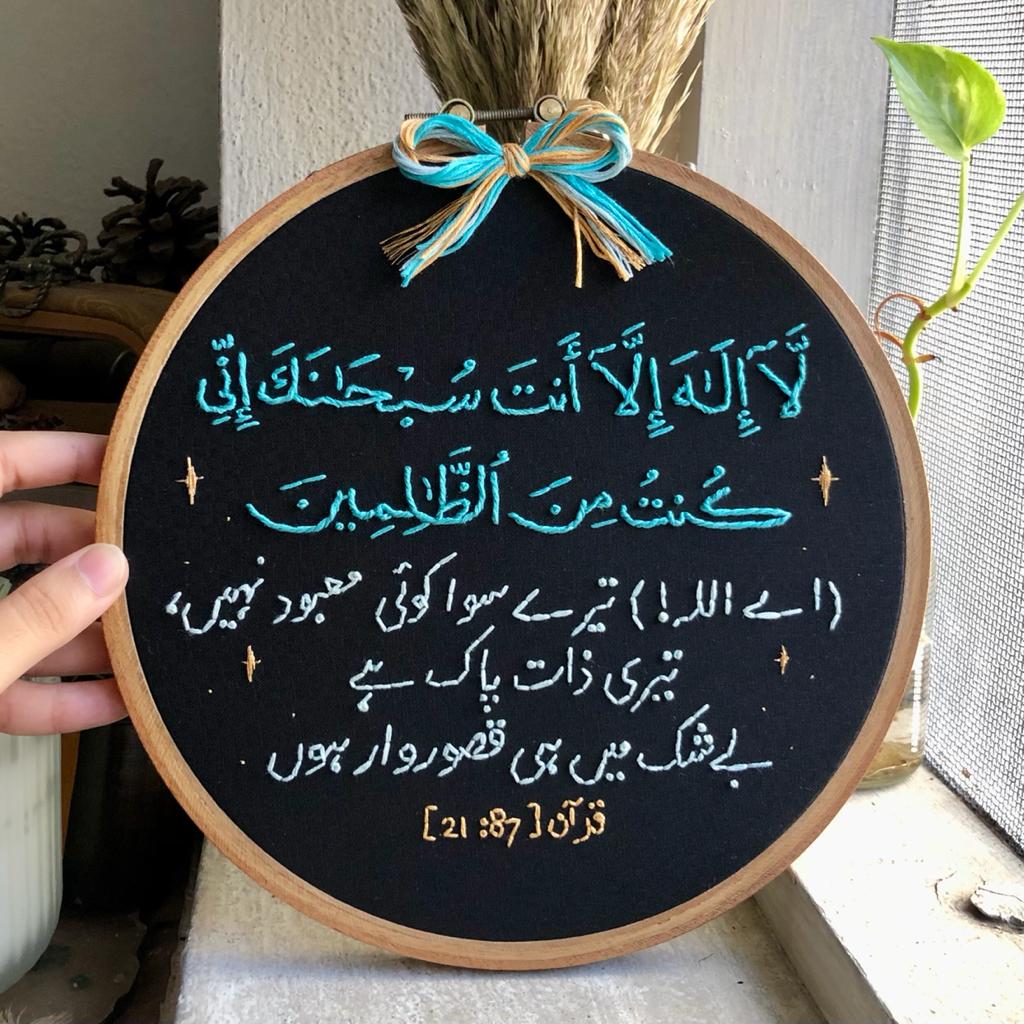 لَّآ إِلَٰهَ إِلَّآ أَنتَ سُبْحَٰنَكَ إِنِّى
كُنتُ مِنَ ٱلظَّٰلِمِينَ
(اے اللہ!) تیرے سوا کوئی معبود نہیں،
تیری ذات پاک ہے
بےشک میں ہی قصوروار ہوں
قرآن [21:87]